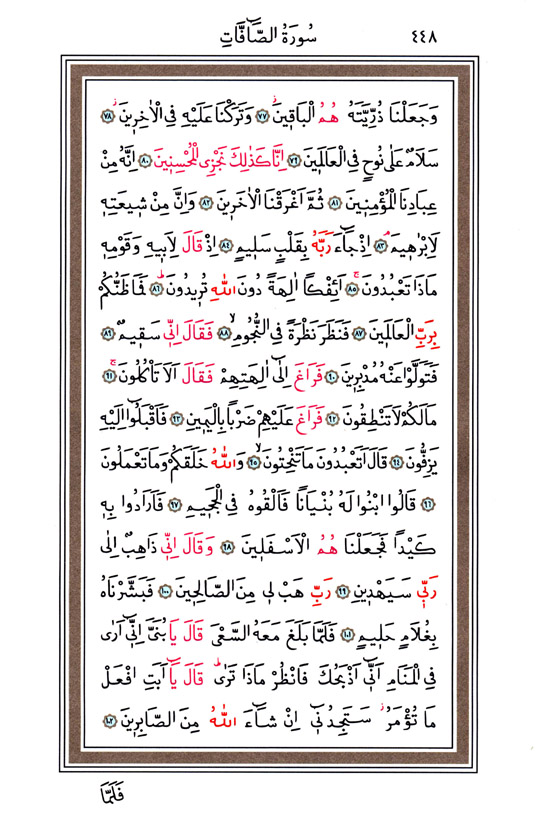 ٤٤٨ سُورَةُ الصَّٓافَّاتِ
وَجَعَلْنَا ذُرِّيَّتَهُ هُمُ الْبَاقٖينَۘ ﴿٧٧﴾ وَتَرَكْنَا عَلَيْهِ فِى الْاٰخِرٖينَۘ ﴿٧٨﴾
سَلَامٌ عَلٰى نُوحٍ فِى الْعَالَمٖينَ ﴿٧٩﴾ اِنَّا كَذٰلِكَ نَجْزِى الْمُحْسِنٖينَ ﴿٨٠﴾ اِنَّهُ مِنْ
عِبَادِنَا الْمُؤْمِنٖينَ ﴿٨١﴾ ثُمَّ اَغْرَقْنَا الْاٰخَرٖينَ ﴿٨٢﴾ وَاِنَّ مِنْ شٖيعَتِهٖ
لَاِبْرٰهٖيمَۘ ﴿٨٣﴾ اِذْ جَٓاءَ رَبَّهُ بِقَلْبٍ سَلٖيمٍ ﴿٨٤﴾ اِذْ قَالَ لِاَبٖيهِ وَقَوْمِهٖ
مَاذَا تَعْبُدُونَۚ ﴿٨٥﴾ اَئِفْكًا اٰلِهَةً دُونَ اللّٰهِ تُرٖيدُونَۜ ﴿٨٦﴾ فَمَا ظَنُّكُمْ
بِرَبِّ الْعَالَمٖينَ ﴿٨٧﴾ فَنَظَرَ نَظْرَةً فِى النُّجُومِۙ ﴿٨٨﴾ فَقَالَ اِنّٖى سَقٖيمٌ ﴿٨٩﴾
فَتَوَلَّوْا عَنْهُ مُدْبِرٖينَ ﴿٩٠﴾ فَرَاغَ اِلٰٓى اٰلِهَتِهِمْ فَقَالَ اَلَا تَاْكُلُونَۚ ﴿٩١﴾
مَا لَكُمْ لَا تَنْطِقُونَ ﴿٩٢﴾ فَرَاغَ عَلَيْهِمْ ضَرْبًا بِالْيَمٖينِ ﴿٩٣﴾ فَاَقْبَلُٓوا اِلَيْهِ
يَزِفُّونَ ﴿٩٤﴾ قَالَ اَتَعْبُدُونَ مَا تَنْحِتُونَۙ ﴿٩٥﴾ وَاللّٰهُ خَلَقَكُمْ وَمَا تَعْمَلُونَ
﴿٩٦﴾ قَالُوا ابْنُوا لَهُ بُنْيَانًا فَاَلْقُوهُ فِى الْجَحٖيمِ ﴿٩٧﴾ فَاَرَادُوا بِهٖ
كَيْدًا فَجَعَلْنَا هُمُ الْاَسْفَلٖينَ ﴿٩٨﴾ وَقَالَ اِنّٖى ذَاهِبٌ اِلٰى
رَبّٖى سَيَهْدٖينِ ﴿٩٩﴾ رَبِّ هَبْ لٖى مِنَ الصَّالِحٖينَ ﴿١٠٠﴾ فَبَشَّرْنَاهُ
بِغُلَامٍ حَلٖيمٍ ﴿١٠١﴾ فَلَمَّا بَلَغَ مَعَهُ السَّعْىَ قَالَ يَا بُنَىَّ اِنّٖٓى اَرٰى
فِى الْمَنَامِ اَنّٖٓى اَذْبَحُكَ فَانْظُرْ مَاذَا تَرٰىۜ قَالَ يَٓا اَبَتِ افْعَلْ
مَا تُؤْمَرُۘ سَتَجِدُنٖٓى اِنْ شَٓاءَ اللّٰهُ مِنَ الصَّابِرٖينَ ﴿١٠٢﴾
فَلَمَّٓا